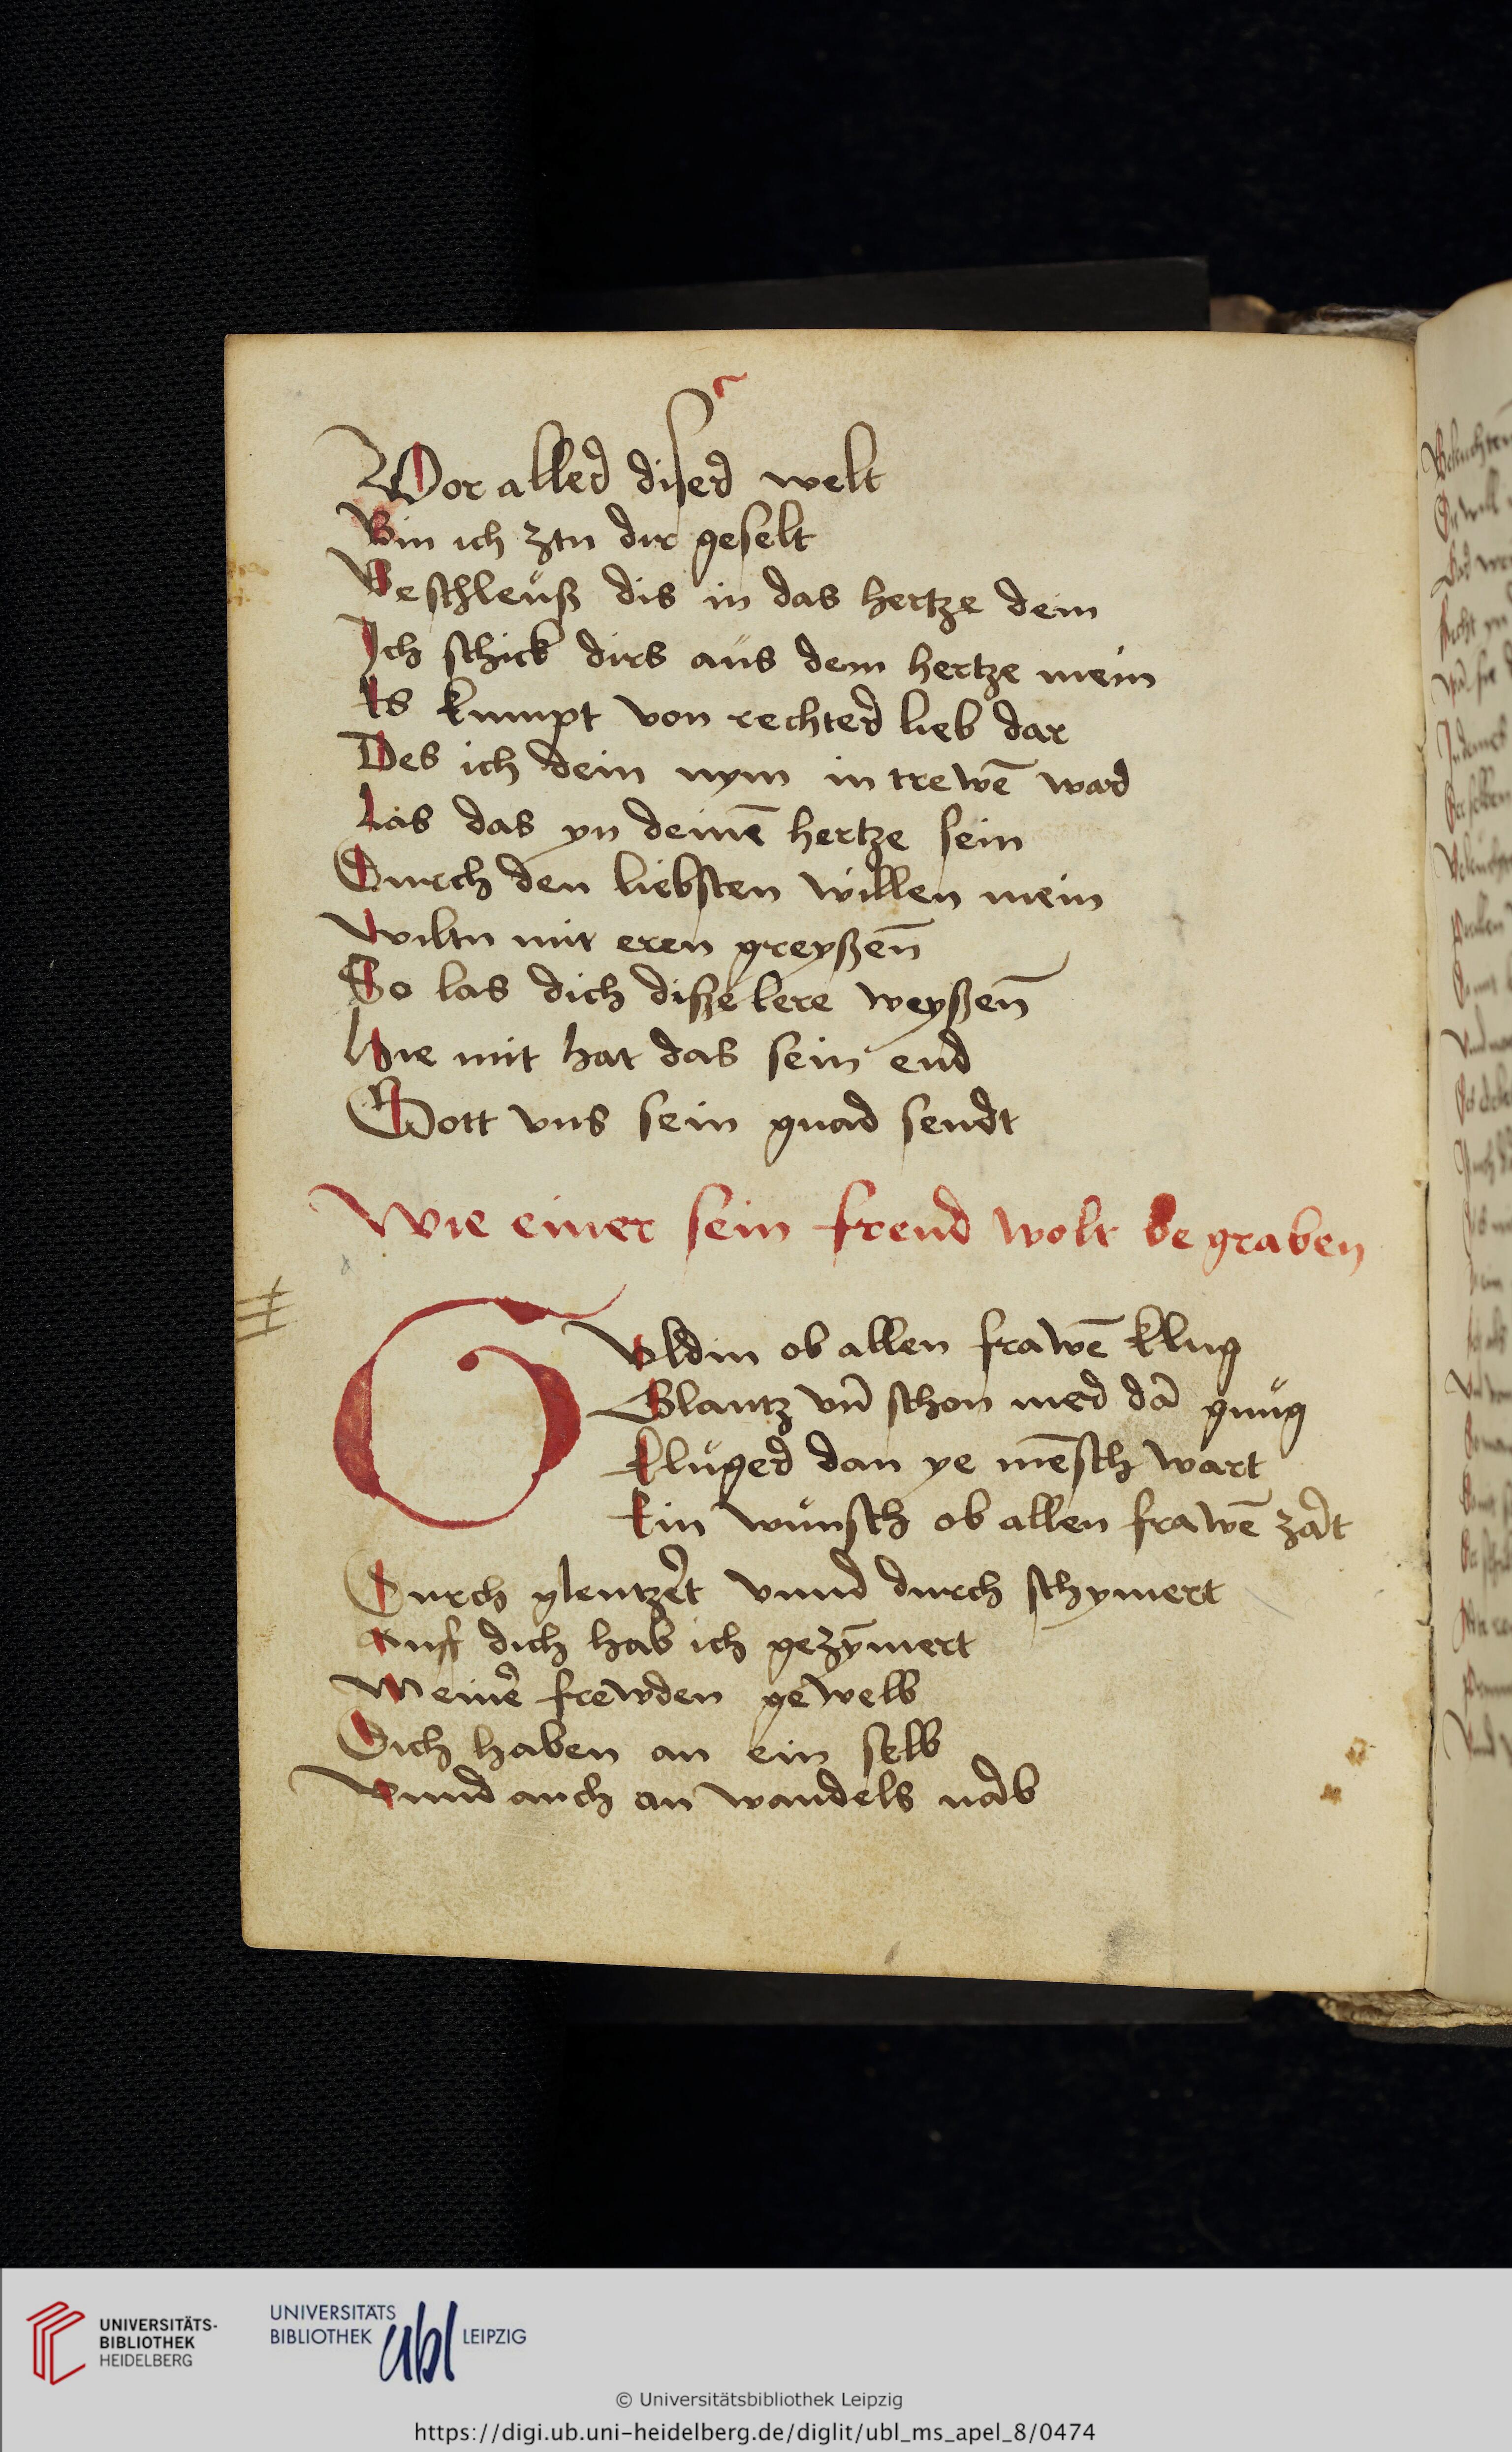 Vor aller diser welt
Bin ich ztu dir geselt
Beschleuß dis in das hertze dein
Ich schick dirs aus dem hertze mein
Es kumpt von rechter lieb dar
Des ich dein nym in trewē war
Las das yn deinē hertze sein
Durch den liebsten willen mein
wiltu mit eren greyßen̄
So las dich diße lere weyßen̄
Hie mit hat das sein end
Gott vns sein gnad sendt
Wie einer sein freud wolt begraben
GVldin ob allen frawē klug
Glantz vn̄ schon mer dā gnug
kluger dan ye mēsch wart
Ein wunsch ob allen frawē zart
Durch glentzert vnnd durch schymert
Auff dich hab ich gezȳmert
Meiner frewden gewelb
Dich haben an ein selb
Vnnd auch an wandels narb
UNIVERSITÄTS-
BIBLIOTHEK
HEIDELBERG
UNIVERSITÄTS
BIBLIOTHEK
ubl
LEIPZIG
© Universitätsbibliothek Leipzig
https://digi.ub.uni-heidelberg.de/diglit/ubl_ms_apel_8/0474